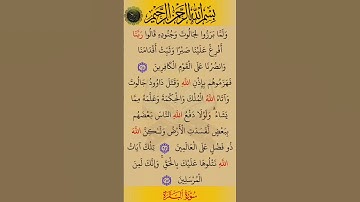 بسم الله الرحمن الرحيم
وَلَمَّا بَرَزُوا لِجَالُوتَ وَجُنُودِهِ قَالُوا رَبَّنَا
أَفْرِغْ عَلَيْنَا صَبْرًا وَثَبِّتْ أَقْدَامَنَا
وَانْصُرْنَا عَلَى الْقَوْمِ الْكَافِرِينَ
فَهَزَمُوهُمْ بِإِذْنِ اللَّهِ وَقَتَلَ دَاوُودُ جَالُوتَ
وَآتَاهُ اللَّهُ الْمُلْكَ وَالْحِكْمَةَ وَعَلَّمَهُ مِمَّا
يَشَاءُ وَلَوْلَا دَفْعُ اللَّهِ النَّاسَ بَعْضَهُم
بِبَعْضٍ لَّفَسَدَتِ الْأَرْضُ وَلَٰكِنَّ اللَّهَ
ذُو فَضْلٍ عَلَى الْعَالَمِينَ تِلْكَ آيَاتُ
اللَّهِ نَتْلُوهَا عَلَيْكَ بِالْحَقِّ وَإِنَّكَ لَمِنَ
الْمُرْسَلِينَ
سورة البقرة